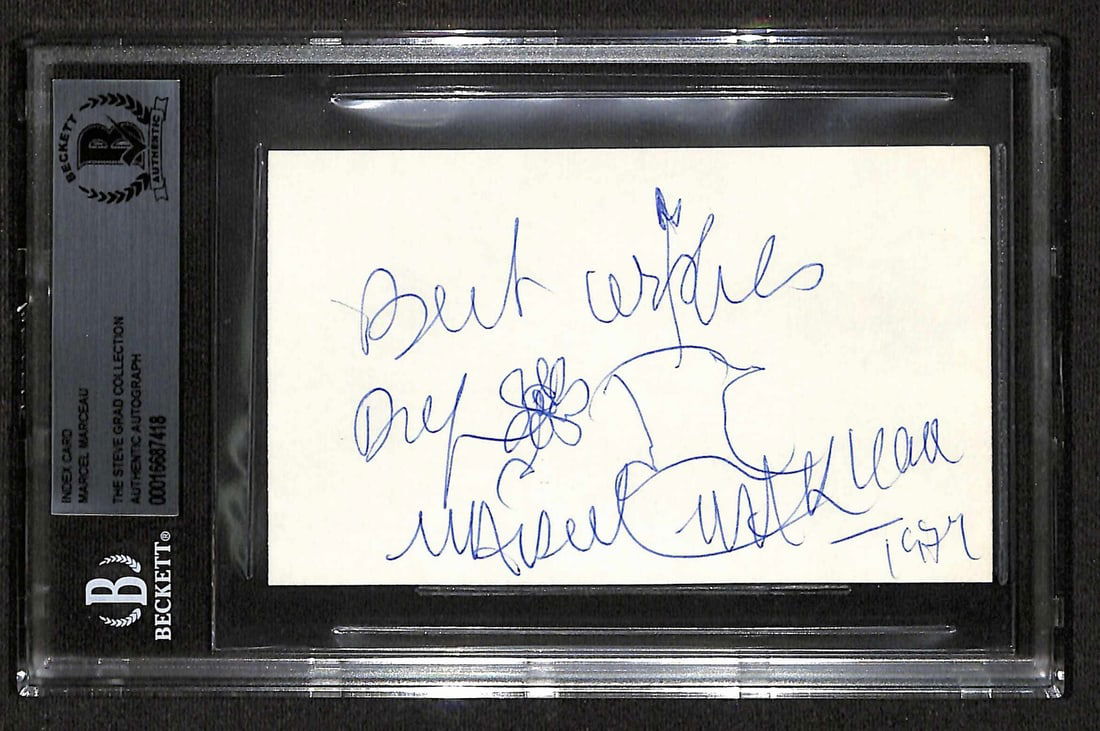 BECKETT
B
AUTHENTIC
INDEX CARD
MARCEL MARCEAU
THE STEVE GRAD COLLECTION
AUTHENTIC AUTOGRAPH
00016687418
B
BECKETT®
Best wishes
Marcel Marceau